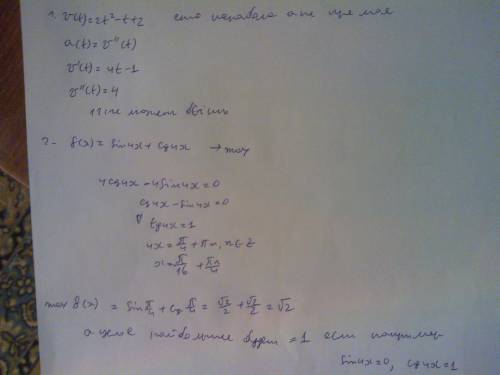 1. V(t)=2t²-t+2 это парабола а не прямая
a(t)=v''(t)
v'(t)=4t-1
v''(t)=4
не может быть
2- f(x)=sin4x+cos4x → max
4cos4x-4sin4x=0
cos4x-sin4x=0
tg4x=1
4x=π/4+πn, n∈z
x=π/16+πn/4
max f(x)=sinπ/4+cosπ/4=√2/2+√2/2=√2
а целое наибольшее будет =1 если например
sin4x=0, cos4x=1